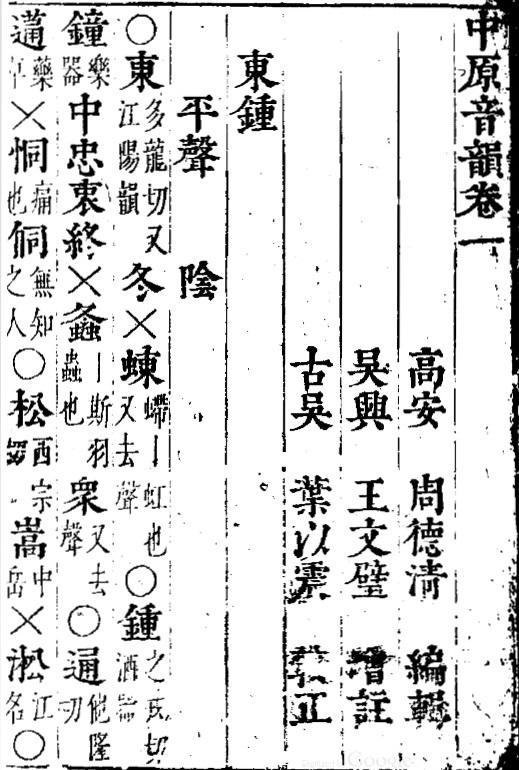 中原音韻卷一
高安 周德清 編輯
吳興 王文璧 增註
古吳 葉以震 正
東鍾
平聲 陰
○東多龍切又江陽韻冬×蝀螮丨虹也又去聲○鍾之戎切酒器
鐘樂器中忠衷終×螽丨斯羽蟲也衆又去聲○通他隆切
蓪藥草×恫痛也侗無知之人○松西宗切嵩中岳×淞江名○